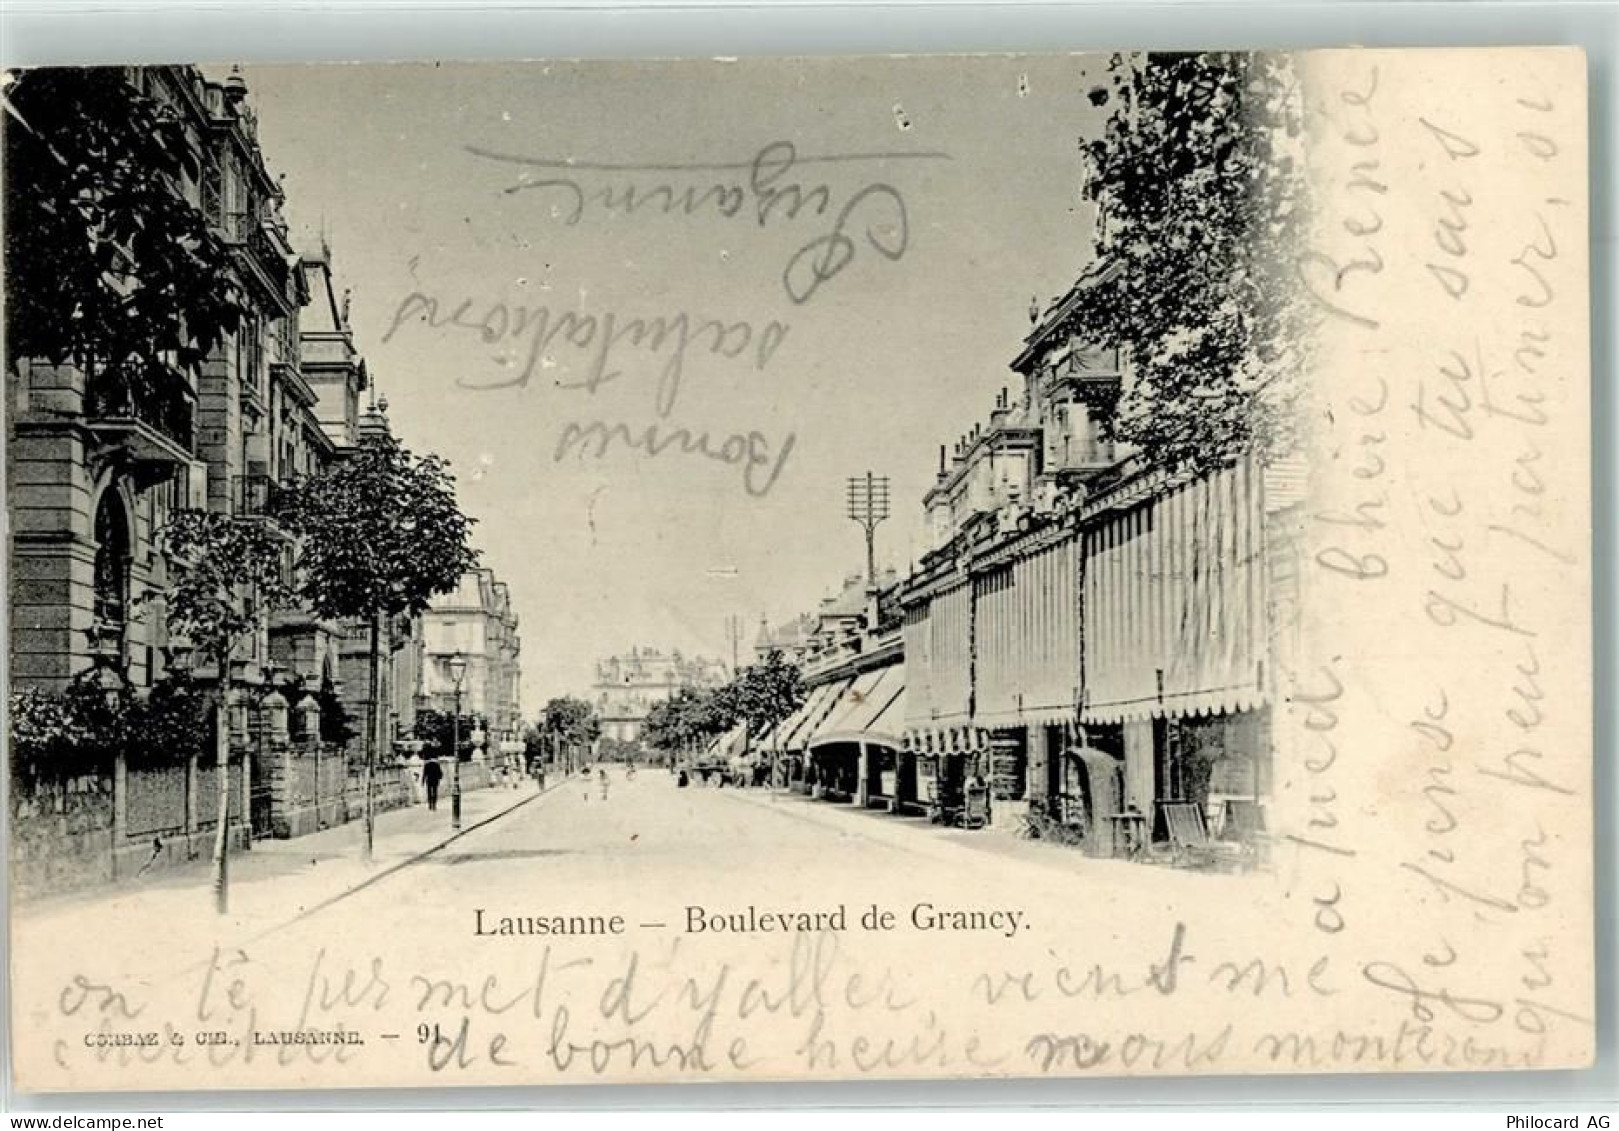 Chère Renée
Je pense que tu sais
qu'on peut patiner, si
on te permet d'y aller, viens me
chercher de bonne heure nous monterons
à pied.
Bonnes
salutations
Suzanne
Lausanne — Boulevard de Grancy.
CORBAZ & CIE., LAUSANNE. — 91
delcampe.net
Philocard AG